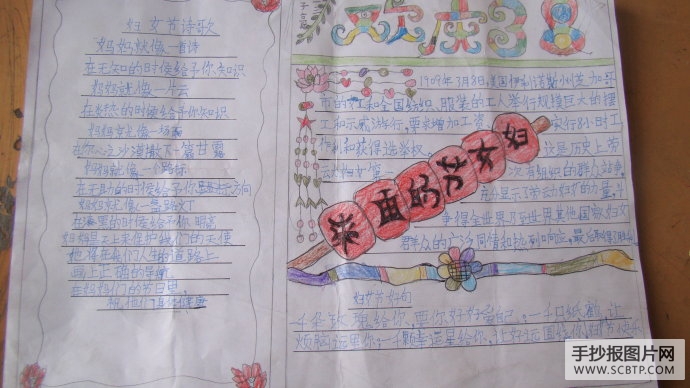 妇女节诗歌
妈妈就像一首诗
在无知的时候给予你知识
妈妈就像一片云
在你 的时候给予你知识
妈妈就像一场
在你 沙漠撒下一篇甘露
妈妈就像一个路标
在无助的时候给予你 方向
妈妈就像一盏路灯
在漆黑的时候给予你
妈妈是天上来保护我们的天使
她将在我们人生的道路上
画上正确的导航
在妈妈们的节日里
祝他们
1909年3月8日,美国伊利诺斯州芝加哥
市的女工和全国纺织、服装的工人举行规模巨大的罢
工和示威游行,要求增加工资 实行8小时工
作制和获得选举权 这是历史上劳
动妇女第一 次有组织的群众
充分显示了劳动妇女的力量,
争得全世界乃至世界其他国家妇女
群众的广泛同情和热烈响应,最
来由的节女妇
妇女节好句
千朵玫瑰给你,要你好好 自己,一千只纸鹤 让
烦恼远离你,一千颗幸运星给你,让好运围绕你
手抄报图片网
WWW.SCBTP.COM